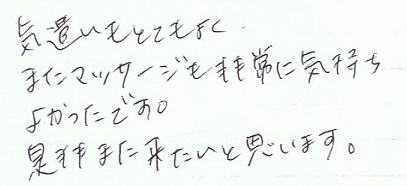 気遣いもとてもよく、
またマッサージも非常に気持ち
よかったです。
是非また来たいと思います。